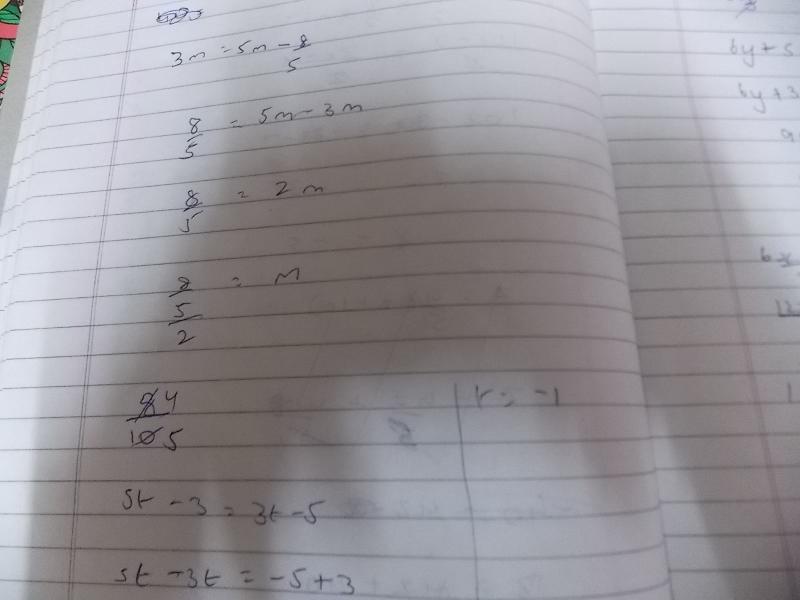 3m = 5m - 8/5
8/5 = 5m - 3m
8/5 = 2m
8/5/2 = m
8 4
10 5
t = -1
5t - 3 = 3t - 5
5t - 3t = -5 + 3
6y + 5
6y + 3
9
12
1